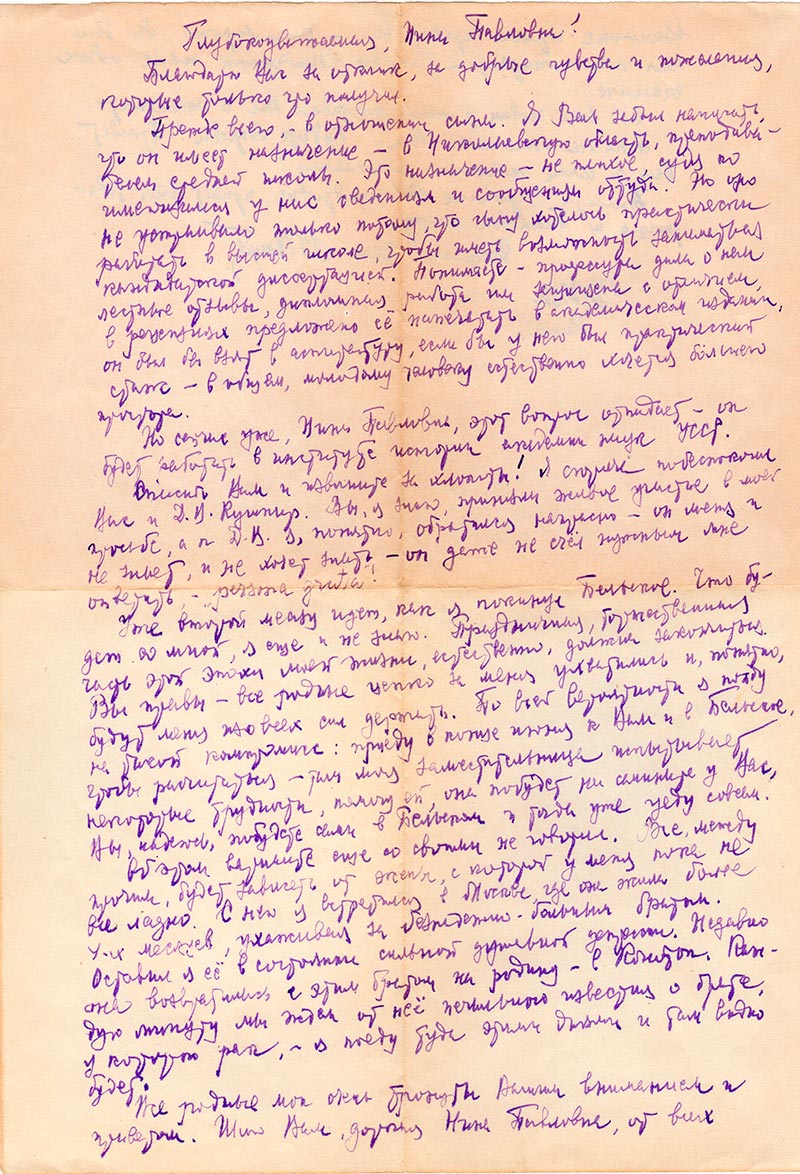 Глубокоуважаемая, Нина Павловна!
Благодарю Вас за отклик, за добрые чувства и пожелания,
которые только что получил.
Прежде всего, – в отношении сына. Я Вам забыл написать,
что он имеет назначение – в Николаевскую область, преподава-
телем средней школы. Это назначение – не плохое, судя по
имеющимся у нас сведениям и сообщениям оттуда. Но оно
не устраивало только потому, что сыну хотелось практически
работать в высшей школе, чтобы иметь возможность заниматься
кандидатской диссертацией. Понимаете – профессура дала о нем
лестные отзывы, дипломная работа им защищена с отличием,
в рецензиях предложено её напечатать в академическом издании,
он был бы взят в аспирантуру, если бы у него был практический
стаж – в общем, молодому человеку естественно хочется большего
простора.
Но сейчас уже, Нина Павловна, этот вопрос отпадает – он
будет работать в институте истории академии наук УССР.
Спасибо Вам и извините за хлопоты! Я сгоряча побеспокоил
Вас и Д.И. Кушнир. Вы, я знаю, приняли живое участие в моей
просьбе, а к Д.И. я, понятно, обратился напрасно – он меня и
не знает, и не хочет знать, – он даже не счёл нужным мне
ответить, – "persona grata"!
Уже второй месяц идет, как я покинул Бельское. Что бу-
дет со мной, я еще и не знаю. Праздничная, божественная
часть этой эпохи моей жизни, естественно, должна закончиться.
Вы правы – все родные цепко за меня ухватились и, понятно,
будут меня изо всех сил держать. По всей вероятности я пойду
на такой компромисс: приеду в конце июня к Вам и в Бельское,
чтобы рассчитаться – там моя заместительница испытывает
некоторые трудности, помогу ей, она побудет на семинаре у Вас,
Вы, надеюсь, побудете сами в Бельском и тогда уже уеду совсем.
Об этом варианте еще со своими не говорил. Все, между
прочим, будет зависеть от жены, с которой у меня пока не
все ладно. С нею я встретился в Москве, где она жила более
4-х месяцев, ухаживая за безнадежно-больным братом.
Оставил я её в состоянии сильной душевной депрессии. Недавно
она возвратилась с этим братом на родину – в Конотоп. Каж-
дую минуту мы ждем от неё печального известия о брате,
у которого рак, – я поеду туда этими днями и там видно
будет.
Все родные мои очень тронуты Вашим вниманием и
приветом. Шлю Вам, дорогая Нина Павловна, от всех